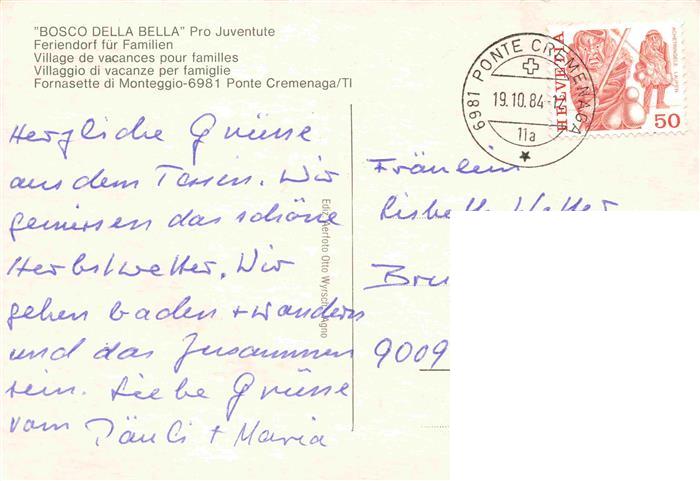 "BOSCO DELLA BELLA" Pro Juventute
Feriendorf für Familien
Village de vacances pour familles
Villaggio di vacanze per famiglie
Fornasette di Monteggio-6981 Ponte Cremenaga/TI
6981 PONTE CREMENAGA
19.10.84-1
11a
HELVETIA
50
Herzliche Grüsse
aus dem Tessin. Wir
geniessen das schöne
Herbstwetter. Wir
gehen baden + wandern
und das Zusammen
sein. Liebe Grüsse
vom + Maria
Ediz. Aerfoto Otto Wyrsch, Agno
Fräulein
Lisbeth
9009